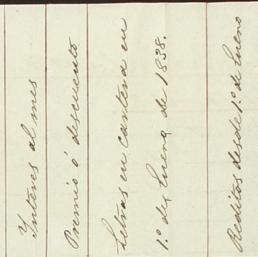 Ynteres al mes
Premio ó descuento
Letras en cartera en
1.º de Enero de 1838.
Reditos desde 1.º de Enero